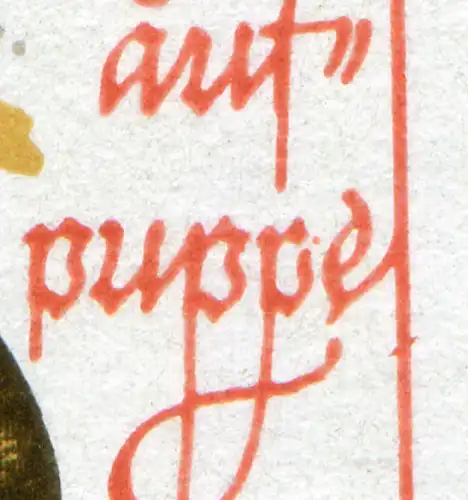 aut"
puppe